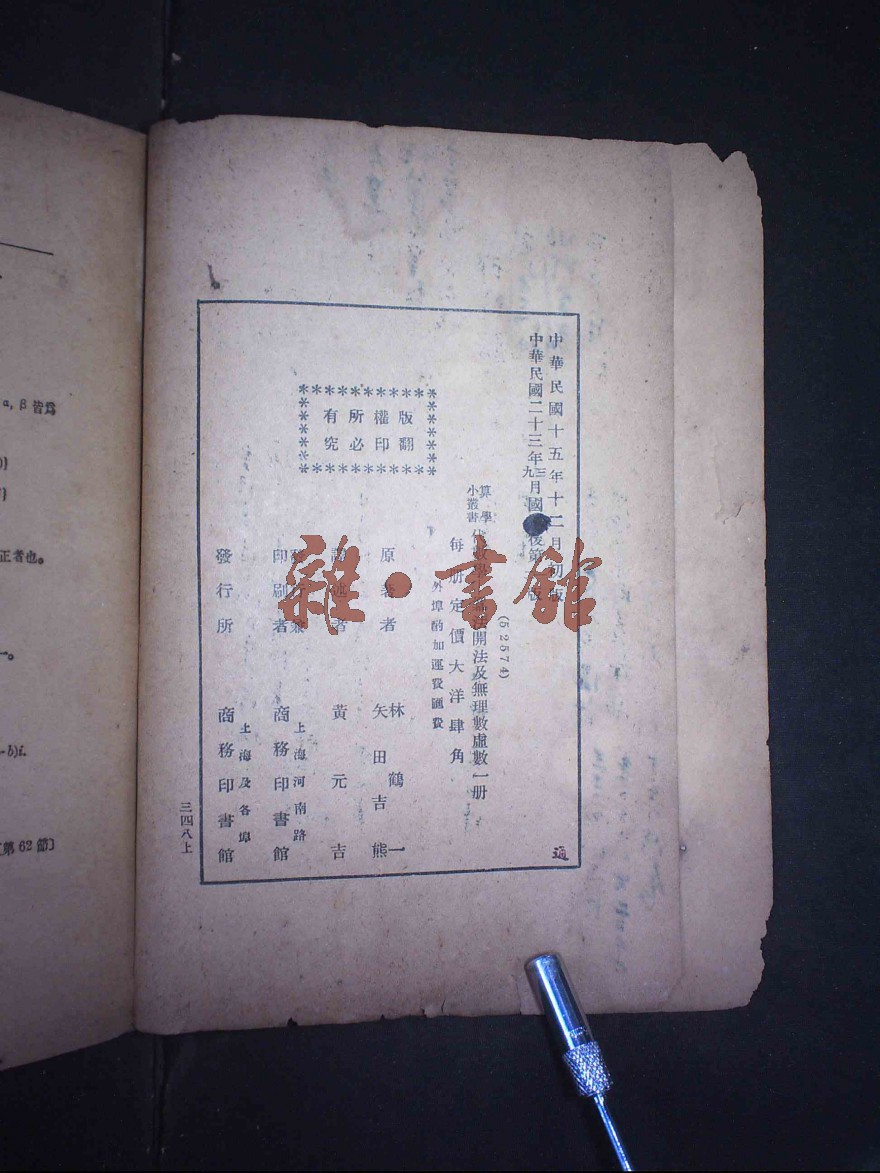 中華民國十五年十二月初版
中華民國二十三年三九月國後第版
(52574)
算學小叢書
代數學法開法及無理數虛數一册
每册定價大洋肆角
外埠酌加運費匯費
版權所有
翻印必究
原著者 林鶴一 矢田吉熊
譯述者 黃元吉
發行兼印刷者 上海河南路 商務印書館
發行所 上海及各埠 商務印書館
三四八上
適
雜·書館
α, β 皆爲
正者也。
-b)i.
〔第62節〕